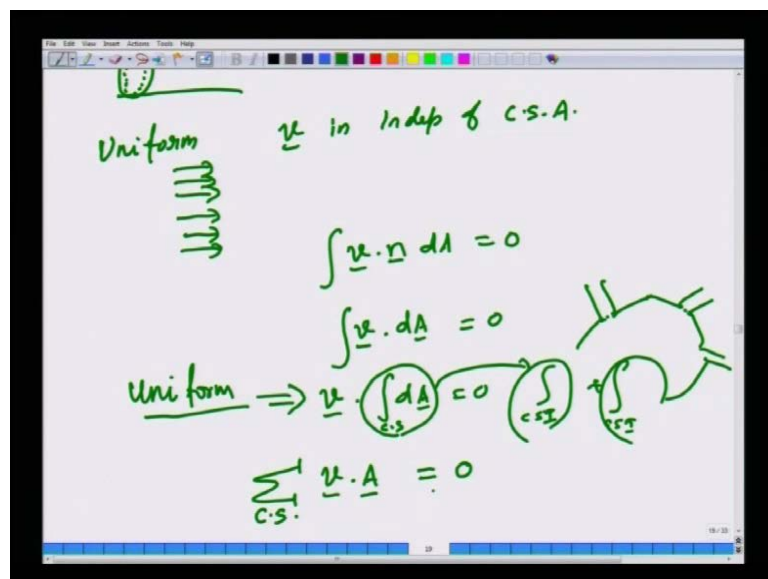 File Edit View Insert Actions Tools Help
Uniform v in indep of C.S.A.
∫ v . n dA = 0
∫ v . dA = 0
Uniform ⇒ v . ∫ dA = 0 ∫ + ∫
C.S CSI CSI
∑ v . A = 0
C.S.
19/33
19